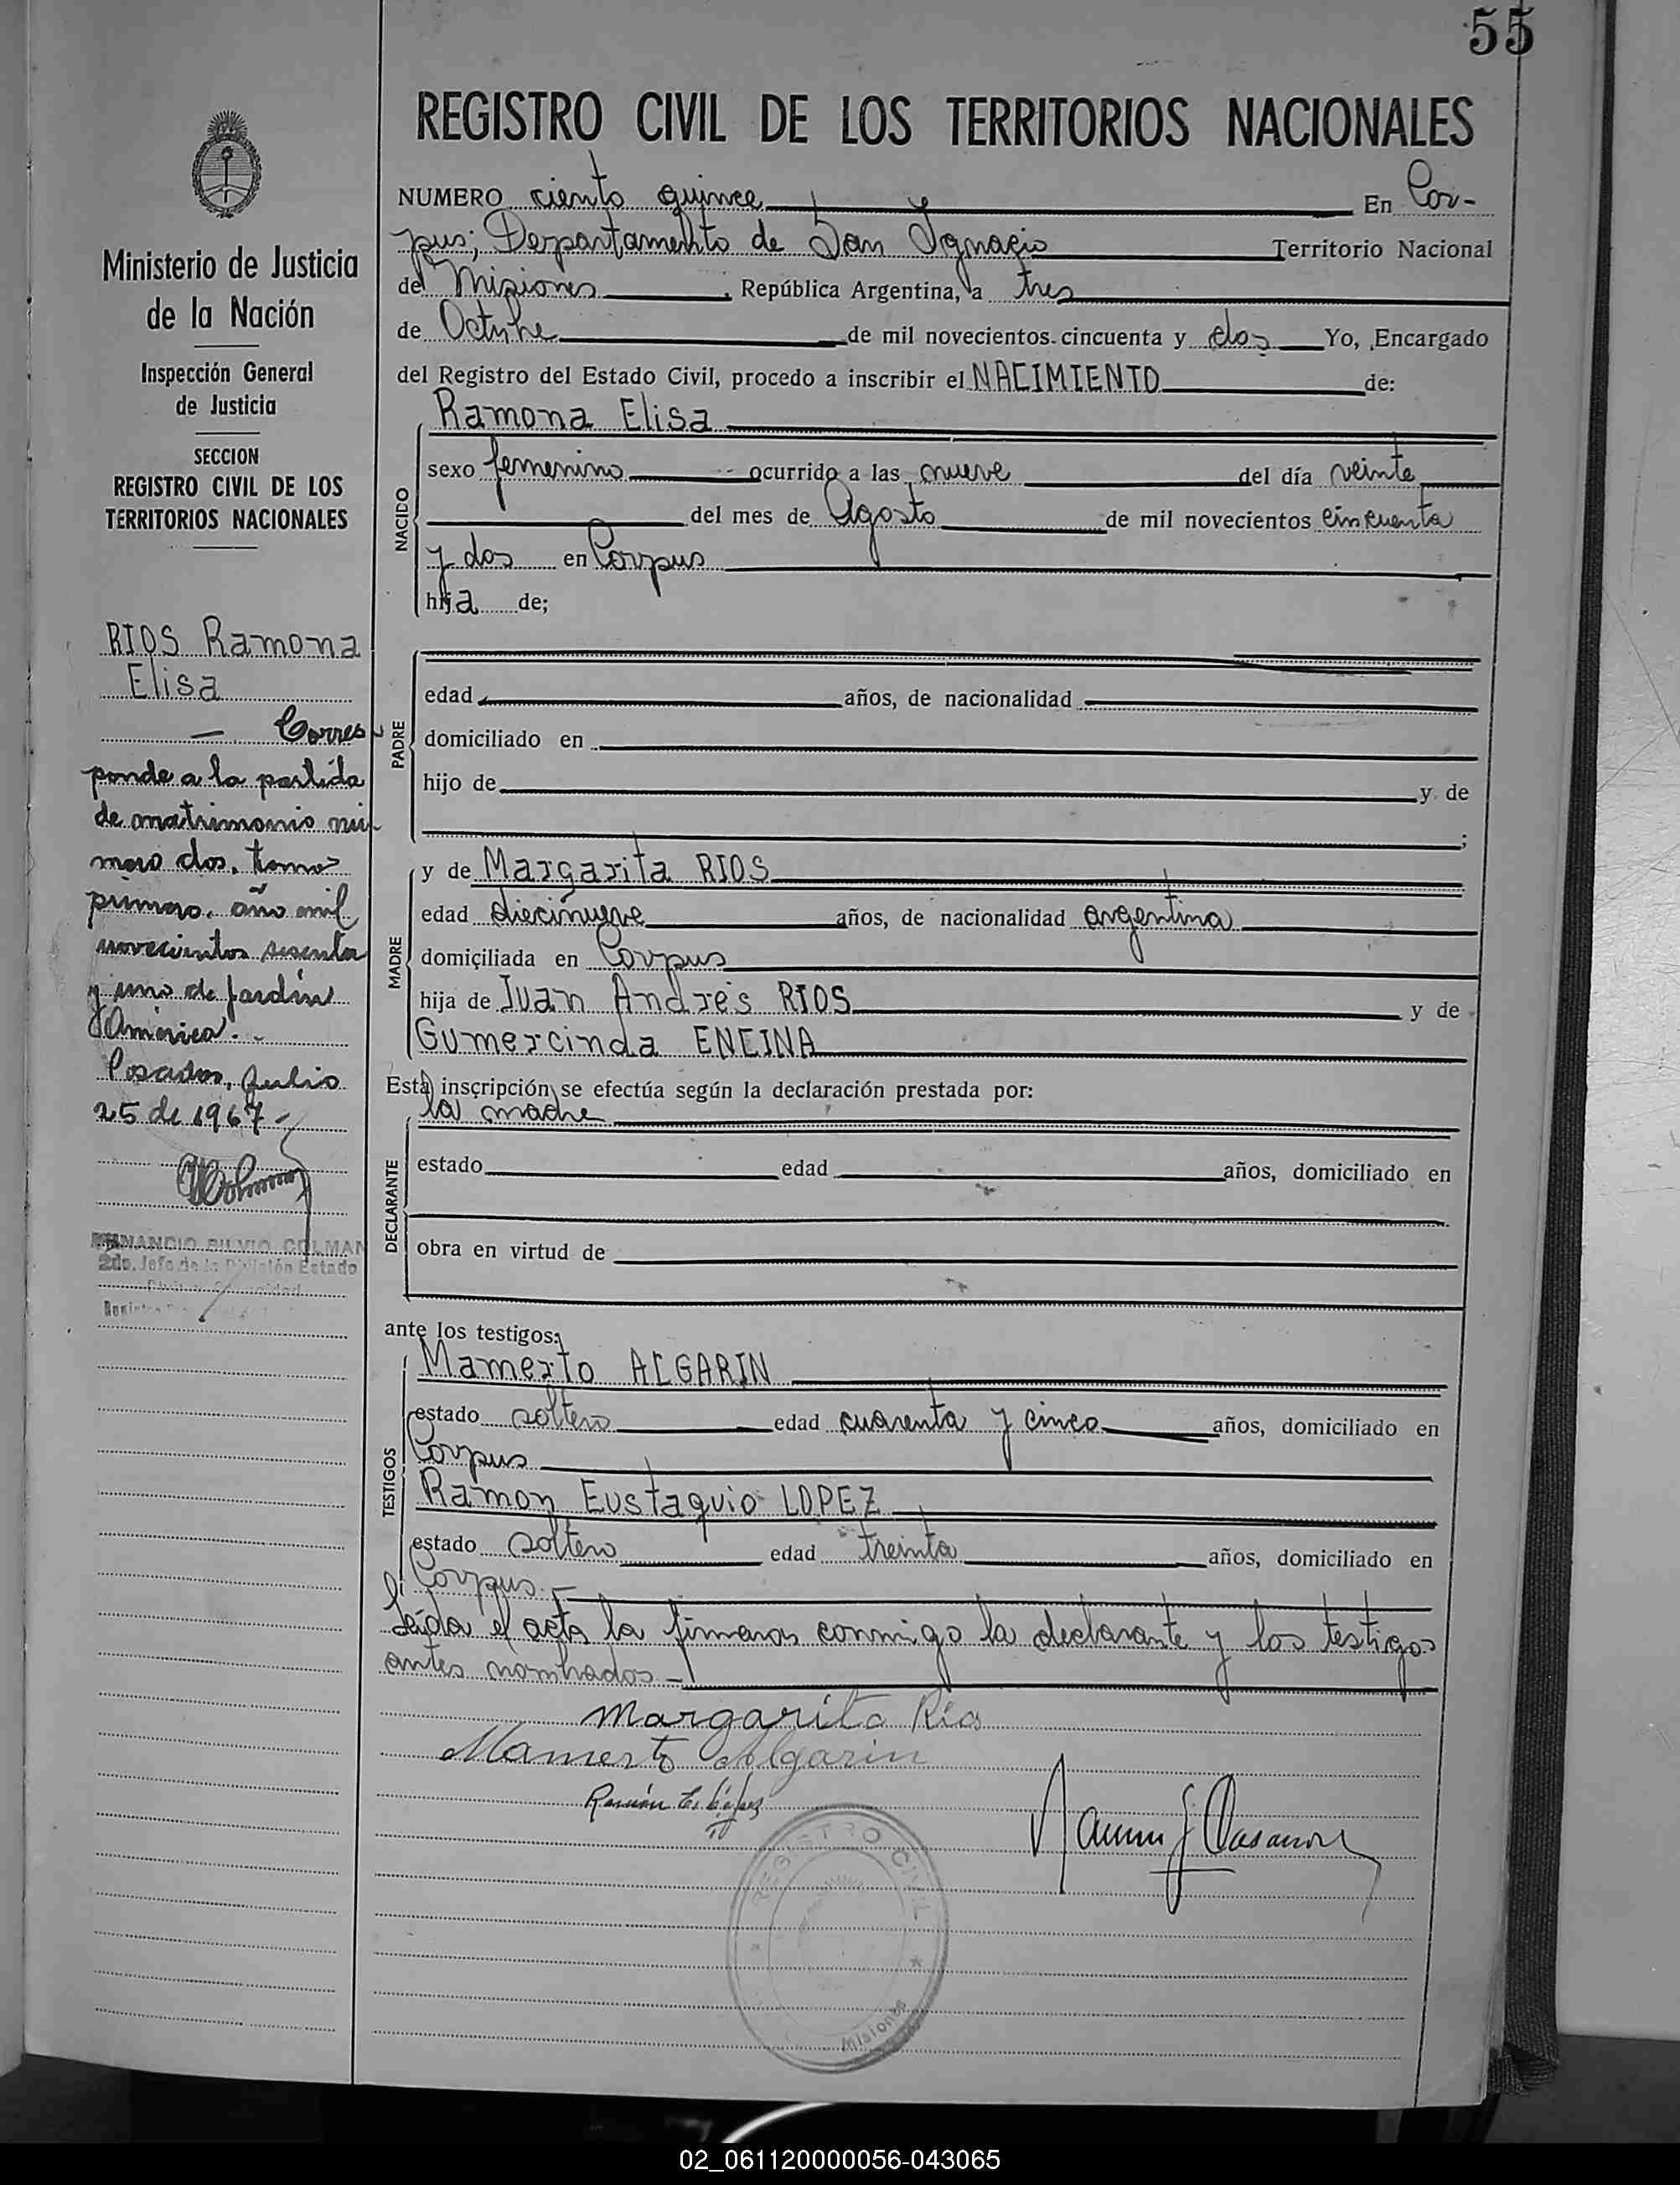 55
REGISTRO CIVIL DE LOS TERRITORIOS NACIONALES
NUMERO ciento quince En Cor-
pus; Departamento de San Ignacio Territorio Nacional
de Misiones, República Argentina, a tres
de Octubre de mil novecientos cincuenta y dos Yo, Encargado
del Registro del Estado Civil, procedo a inscribir el NACIMIENTO de:
NACIDO
Ramona Elisa
sexo femenino ocurrido a las nueve del día veinte
del mes de Agosto de mil novecientos cincuenta
y dos en Corpus
hija de;
PADRE
edad años, de nacionalidad
domiciliado en
hijo de y de
;
MADRE
y de Margarita RIOS
edad diecinueve años, de nacionalidad argentina
domiciliada en Corpus
hija de Juan Andrés RIOS y de
Gumercinda ENCINA
Esta inscripción se efectúa según la declaración prestada por:
DECLARANTE
la madre
estado edad años, domiciliado en
obra en virtud de
ante los testigos:
TESTIGOS
Mamerto ALGARIN
estado soltero edad cuarenta y cinco años, domiciliado en
Corpus
Ramon Eustaquio LOPEZ
estado soltero edad treinta años, domiciliado en
Corpus.-
Leída el acta la firmaron conmigo la declarante y los testigos
antes nombrados.-
Margarita Rios
Mamerto Algarin
Ramón E. López
REGISTRO CIVIL
Misiones
Ministerio de Justicia
de la Nación
Inspección General
de Justicia
SECCION
REGISTRO CIVIL DE LOS
TERRITORIOS NACIONALES
RIOS Ramona
Elisa
— Corres
ponde a la partida
de matrimonio nú-
mero dos, tomo
primero, año mil
novecientos sesenta
y uno de Jardín
América.-
Posadas, Julio
25 de 1967-
SILVIO COLMAN
2do. Jefe de la División Estado
02_061120000056-043065